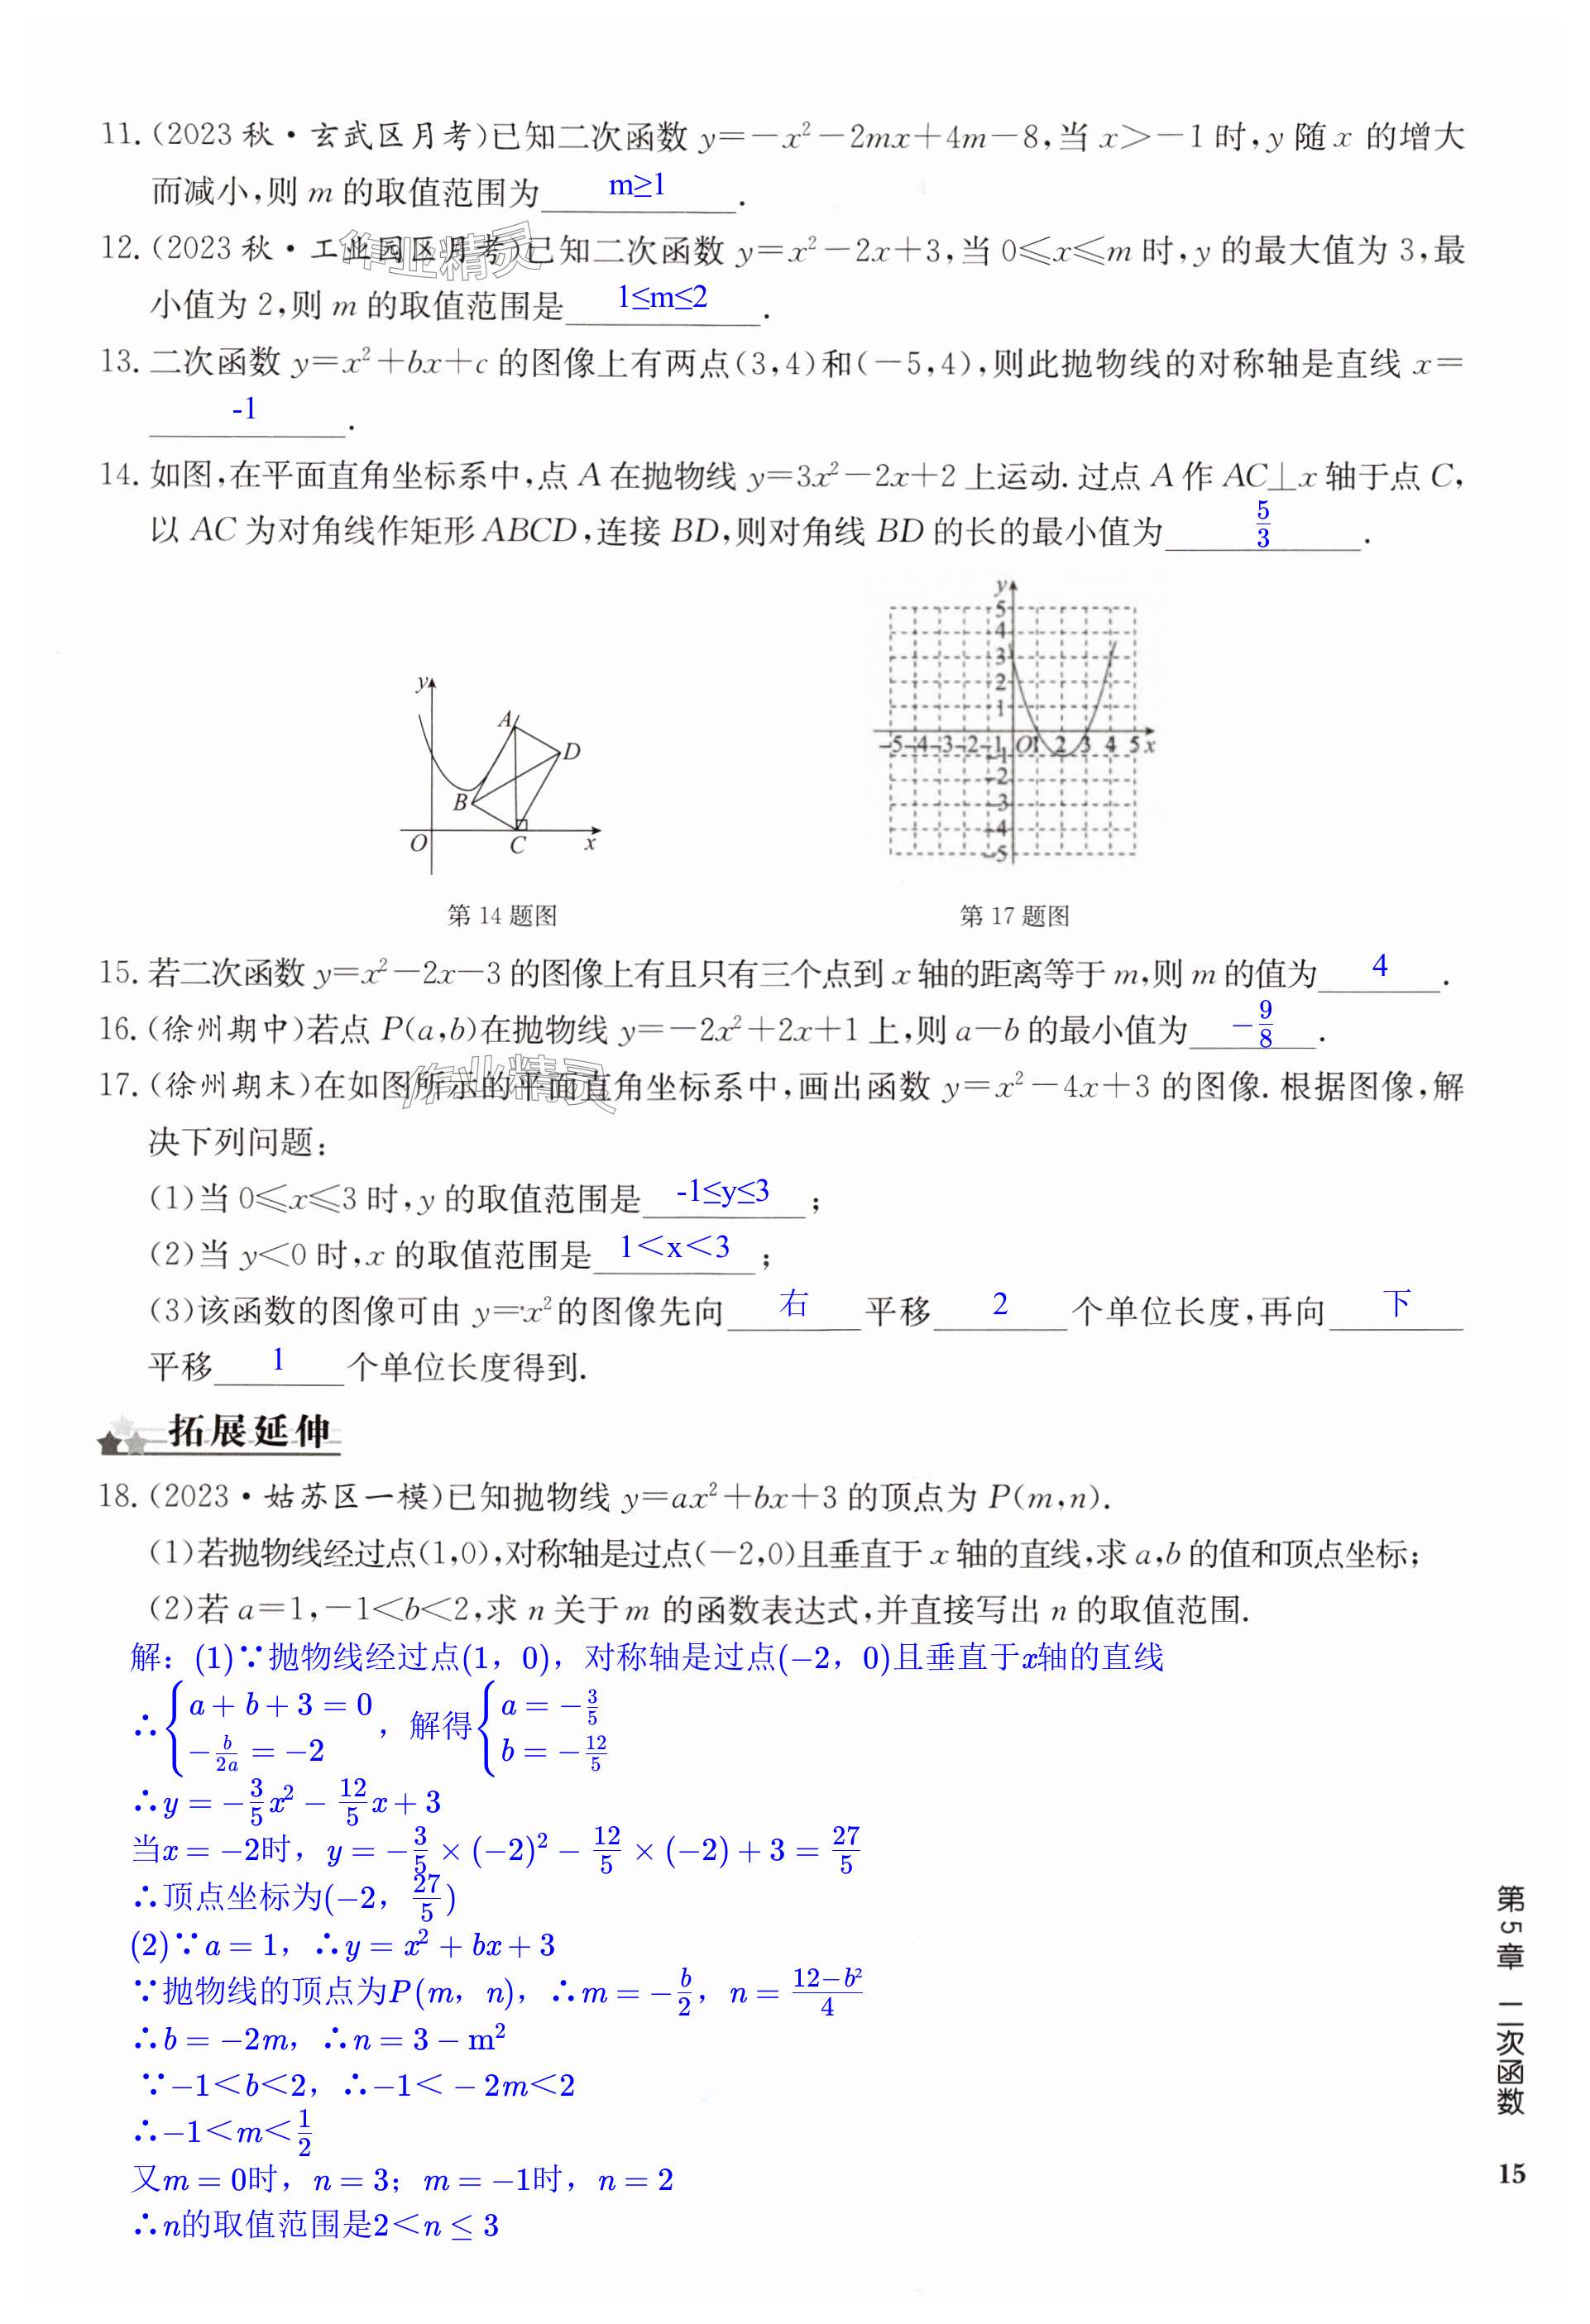 11. (2023 秋·玄武区月考)已知二次函数 y=-x²-2mx+4m-8,当 x>-1 时,y 随 x 的增大
而减小,则 m 的取值范围为 m≥1 .
12. (2023 秋·工业园区月考)已知二次函数 y=x²-2x+3,当 0≤x≤m 时,y 的最大值为 3,最
小值为 2,则 m 的取值范围是 1≤m≤2 .
13. 二次函数 y=x²+bx+c 的图像上有两点(3,4)和(-5,4),则此抛物线的对称轴是直线 x=
-1 .
14. 如图,在平面直角坐标系中,点 A 在抛物线 y=3x²-2x+2 上运动. 过点 A 作 AC⊥x 轴于点 C,
以 AC 为对角线作矩形 ABCD,连接 BD,则对角线 BD 的长的最小值为 5/3 .
y A D B O C x
y 5 4 3 2 1 -5 -4 -3 -2 -1 O 1 2 3 4 5 x -1 -2 -3 -4 -5
第 14 题图 第 17 题图
15. 若二次函数 y=x²-2x-3 的图像上有且只有三个点到 x 轴的距离等于 m,则 m 的值为 4 .
16. (徐州期中)若点 P(a,b)在抛物线 y=-2x²+2x+1 上,则 a-b 的最小值为 -9/8 .
17. (徐州期末)在如图所示的平面直角坐标系中,画出函数 y=x²-4x+3 的图像. 根据图像,解
决下列问题:
(1)当 0≤x≤3 时,y 的取值范围是 -1≤y≤3 ;
(2)当 y<0 时,x 的取值范围是 1<x<3 ;
(3)该函数的图像可由 y=x² 的图像先向 右 平移 2 个单位长度,再向 下
平移 1 个单位长度得到.
作业精灵
作业精灵
拓展延伸
18. (2023·姑苏区一模)已知抛物线 y=ax²+bx+3 的顶点为 P(m,n).
(1)若抛物线经过点(1,0),对称轴是过点(-2,0)且垂直于 x 轴的直线,求 a,b 的值和顶点坐标;
(2)若 a=1,-1<b<2,求 n 关于 m 的函数表达式,并直接写出 n 的取值范围.
解：(1)∵抛物线经过点(1，0)，对称轴是过点(-2，0)且垂直于x轴的直线
∴{a+b+3=0, -b/2a=-2，解得{a=-3/5, b=-12/5
∴y=-3/5x²-12/5x+3
当x=-2时，y=-3/5×(-2)²-12/5×(-2)+3=27/5
∴顶点坐标为(-2，27/5)
(2)∵a=1，∴y=x²+bx+3
∵抛物线的顶点为P(m，n)，∴m=-b/2，n=(12-b²)/4
∴b=-2m，∴n=3-m²
∵-1<b<2，∴-1<-2m<2
∴-1<m<1/2
又m=0时，n=3；m=-1时，n=2
∴n的取值范围是2<n≤3
第5章 二次函数
15